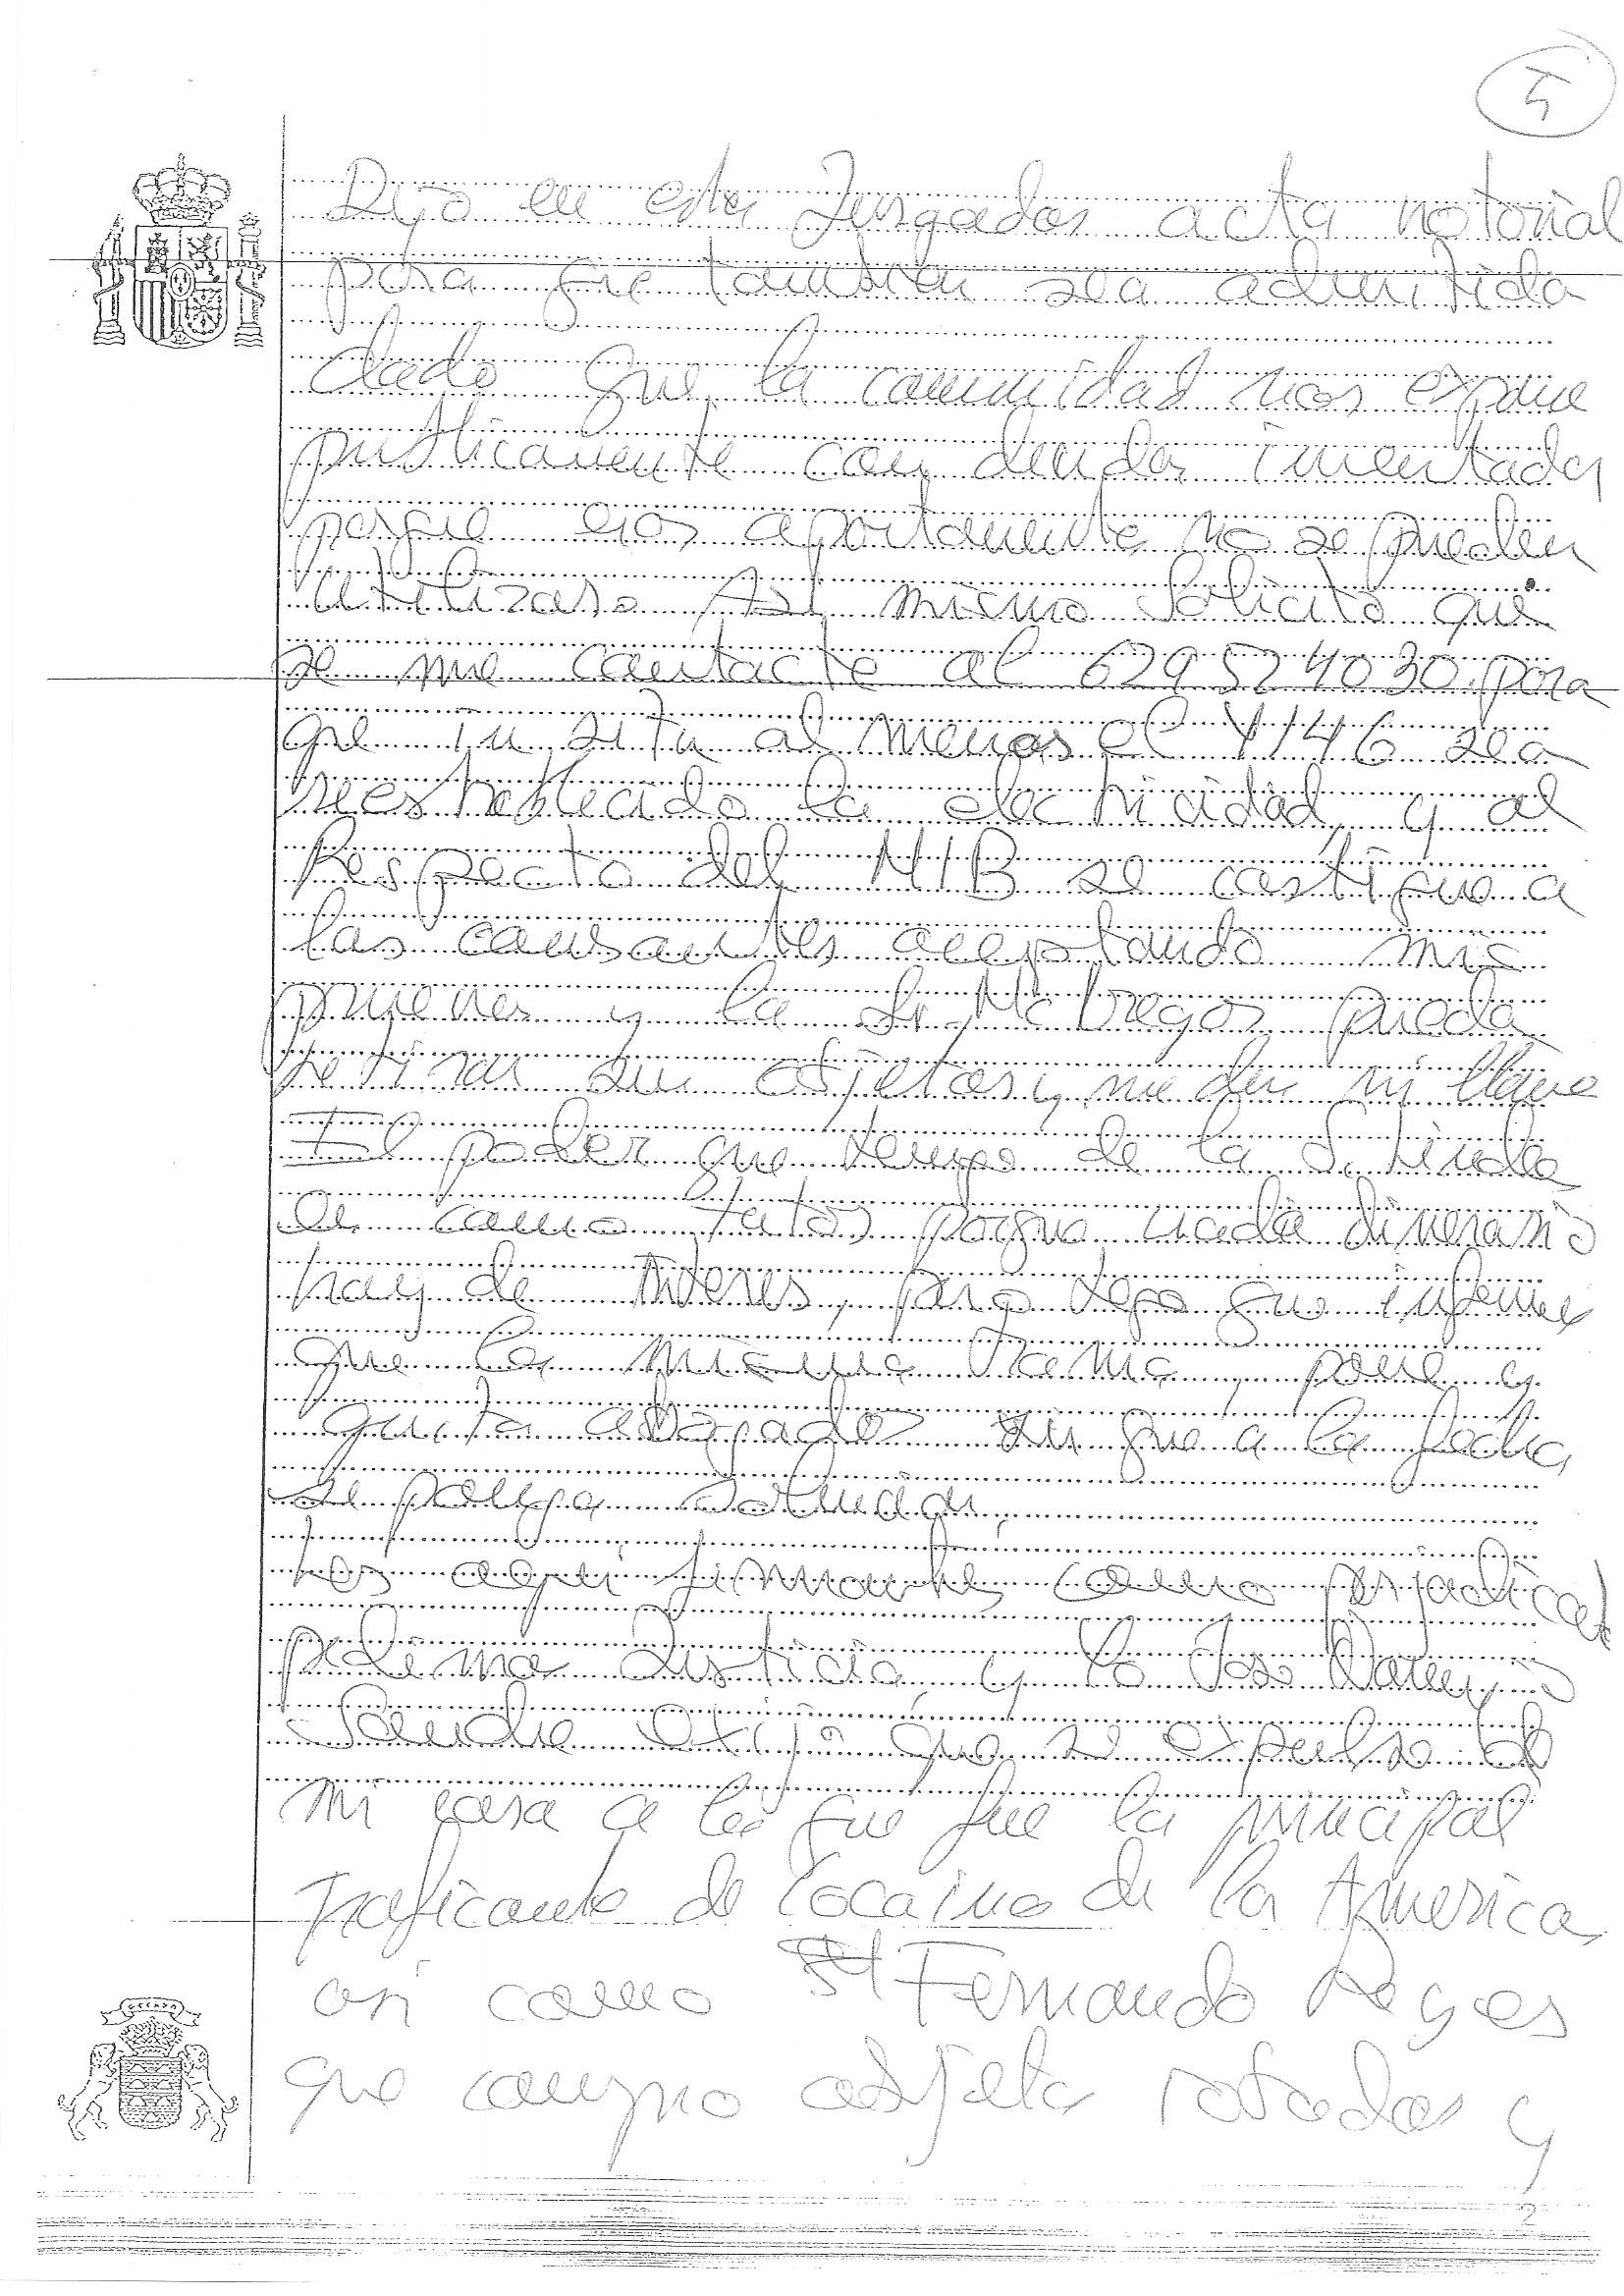 5
Dejo en esta Juzgados acta notorial
para que tambien sea admitida
dado que la comunidad nos expone
publicamente con deudas inventadas
porque esos apartamento no se pueden
utilizaro Asi mismo Solicito que
se me contacte al 629524030 para
que in situ al menos el 4146 sea
reestablecido la electricidad, y al
Respecto del M1B se castigue a
las causantes aceptando mis
pruevas y la Sr. McGregor pueda
retirar sus objetos y me den mi llave
El poder que tengo de la S. Linda
es como tutor, porque nada dinerario
hay de interes, pero tengo que informar
que la misma Zama, pone y
quita abogados sin que a la fecha
se ponga solucion.
Los aqui firmantes como perjudicas
pedimos Justicia, y lo Jose
Sanche exijo que se expulse de
mi casa a la que fue la principal
traficante de cocaina de la America,
asi como Fernando Reyes
que compro objeto robados y
2